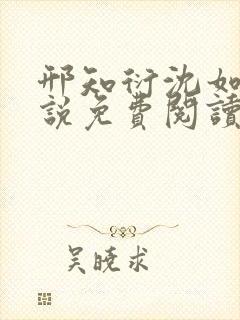 邢知衍沈如
說免費閱讀
吴曉求